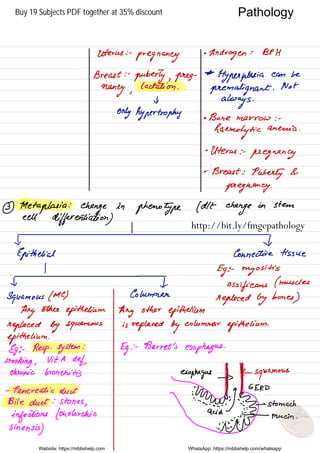 Buy 19 Subjects PDF together at 35% discount
Pathology
Uterus:- pregnancy
Breast:- puberty, preg-
nancy, lactation.
↓
only hypertrophy
• Androgen: BPH
* Hyperplasia can be
premalignant. Not
always.
• Bone marrow:-
haemolytic anemia.
- Uterus:- pregnancy
- Breast: Puberty &
pregnancy.
③ Metaplasia: change in phenotype (d/t change in stem
cell differentiation)
http://bit.ly/fmgepathology
Epithelial
Connective tissue
Eg:- myositis
ossificans (muscles
replaced by bones)
Squamous (MC)
Any other epithelium
replaced by squamous
epithelium.
Eg:- Resp. system:
smoking, Vit A def,
chronic bronchitis
- Pancreatic duct
Bile duct: stones,
infections (chelorchis
sinensis)
Columnar
Any other epithelium
is replaced by columnar epithelium.
Eg:- Barret's esophagus.
esophagus
squamous
GERD
acid
stomach
Mucin.
Website: https://mbbshelp.com
WhatsApp: https://mbbshelp.com/whatsapp